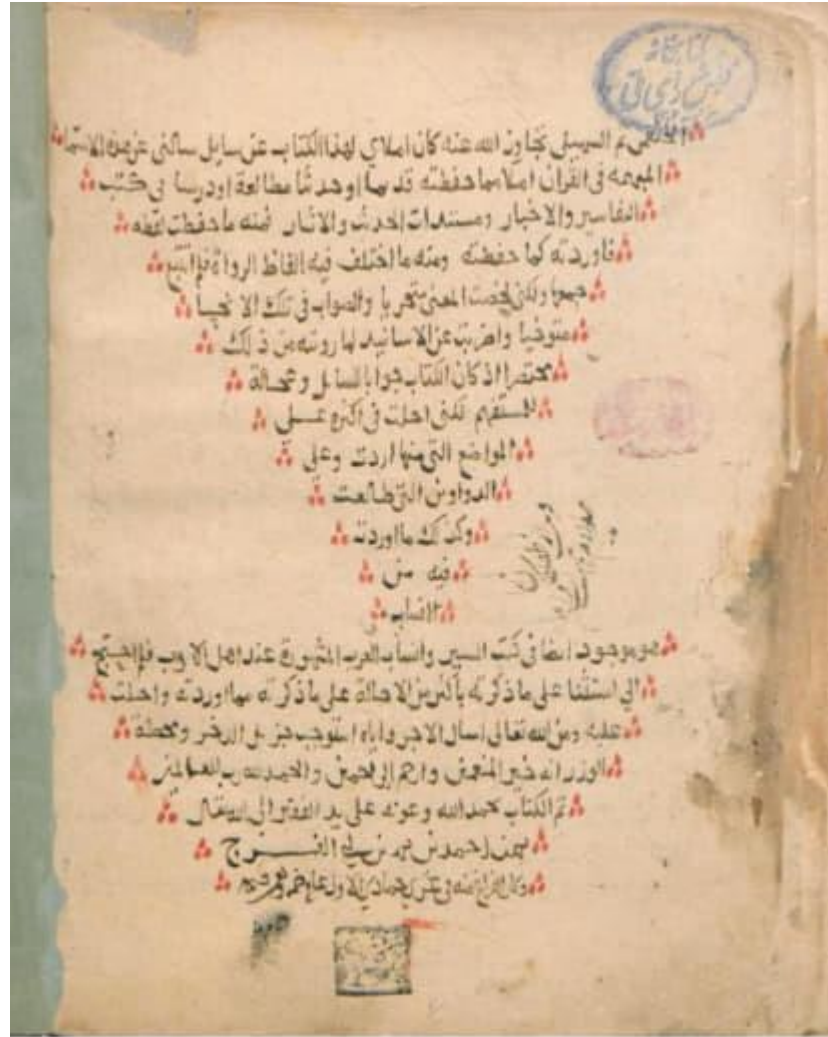 كتابخانه
مجلس شورای ملی
ثم السهيلي تجاوز الله عنه كان املاي لهذا الكتاب عن سايل سالني عن هذه الاسما
المبهمة في القران املا مما حفظته قديما او حدثا مطالعة او درسا في كتب
التفاسير والاخبار ومسندات الحديث والاثار فمنه ما حفظت لفظه
فاوردته كما حفظته ومنه ما اختلف فيه الفاظ الرواة فلم اتتبع
جميعها ولكني لخصت المعنى متحريا والصواب في تلك الانحيا
متوخيا واضربت عن الاسانيد لما رويته من ذلك
مختصرا اذ كان الكتاب جوابا لسايل وعجالة
لمستفهم لكني احلت في اكثره عــلى
المواضع التي منها اردت وعلى
الدواوين التي طالعت
وكذلك ما اوردته
فيه من
الانساب
هو موجود ايضا في كتب السير وانساب العرب المشهورة عند اهل الادب فلم احتج
الى استقنا على ما ذكرته باكثر من الاحالة على ما ذكرته مما اوردته واحلت
عليه ومن الله تعالى اسال الاجر واياه استوجب جزيل الذخر ومحطة
الوزر انه خير المنعمين وارحم الراحمين والحمد لله رب العالمين
تم الكتاب بحمد الله وعونه على يد الفقير الى الله تعال
احمد بن بن ابي الفــــرج
وكان الفراغ منه في جمادي الاول